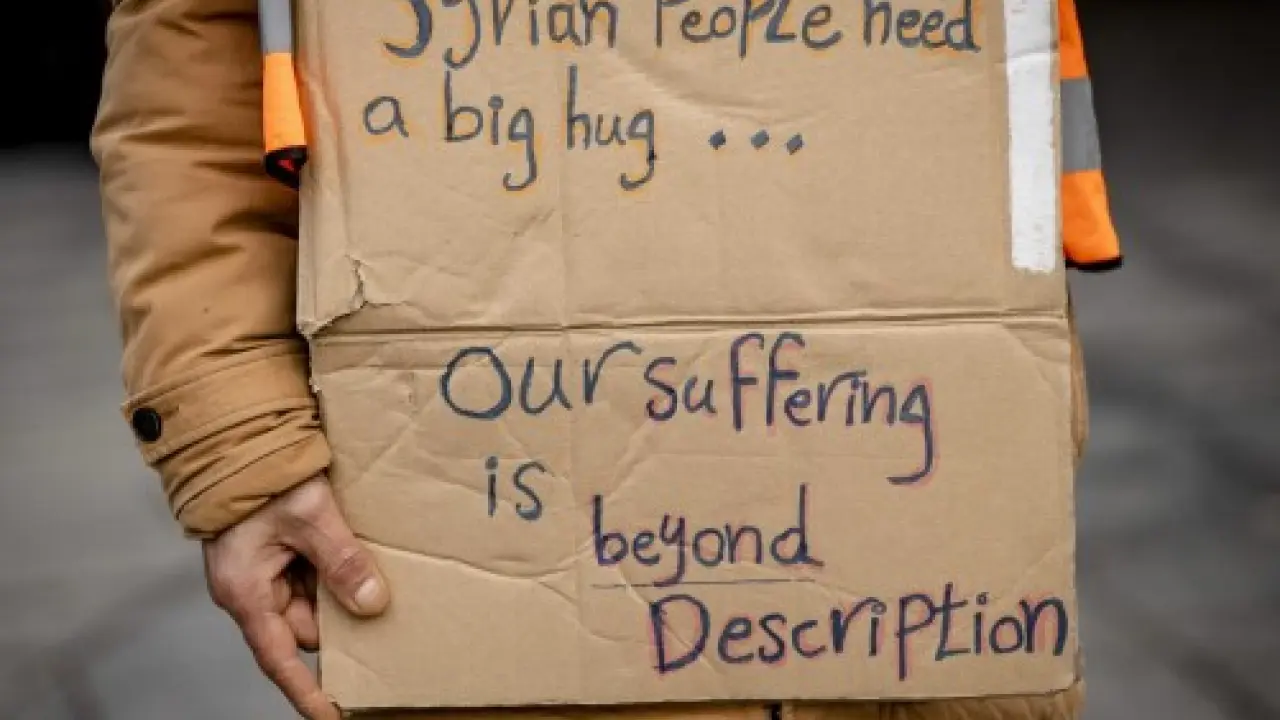 Syrian People need
a big hug ...
Our suffering
is beyond
Description